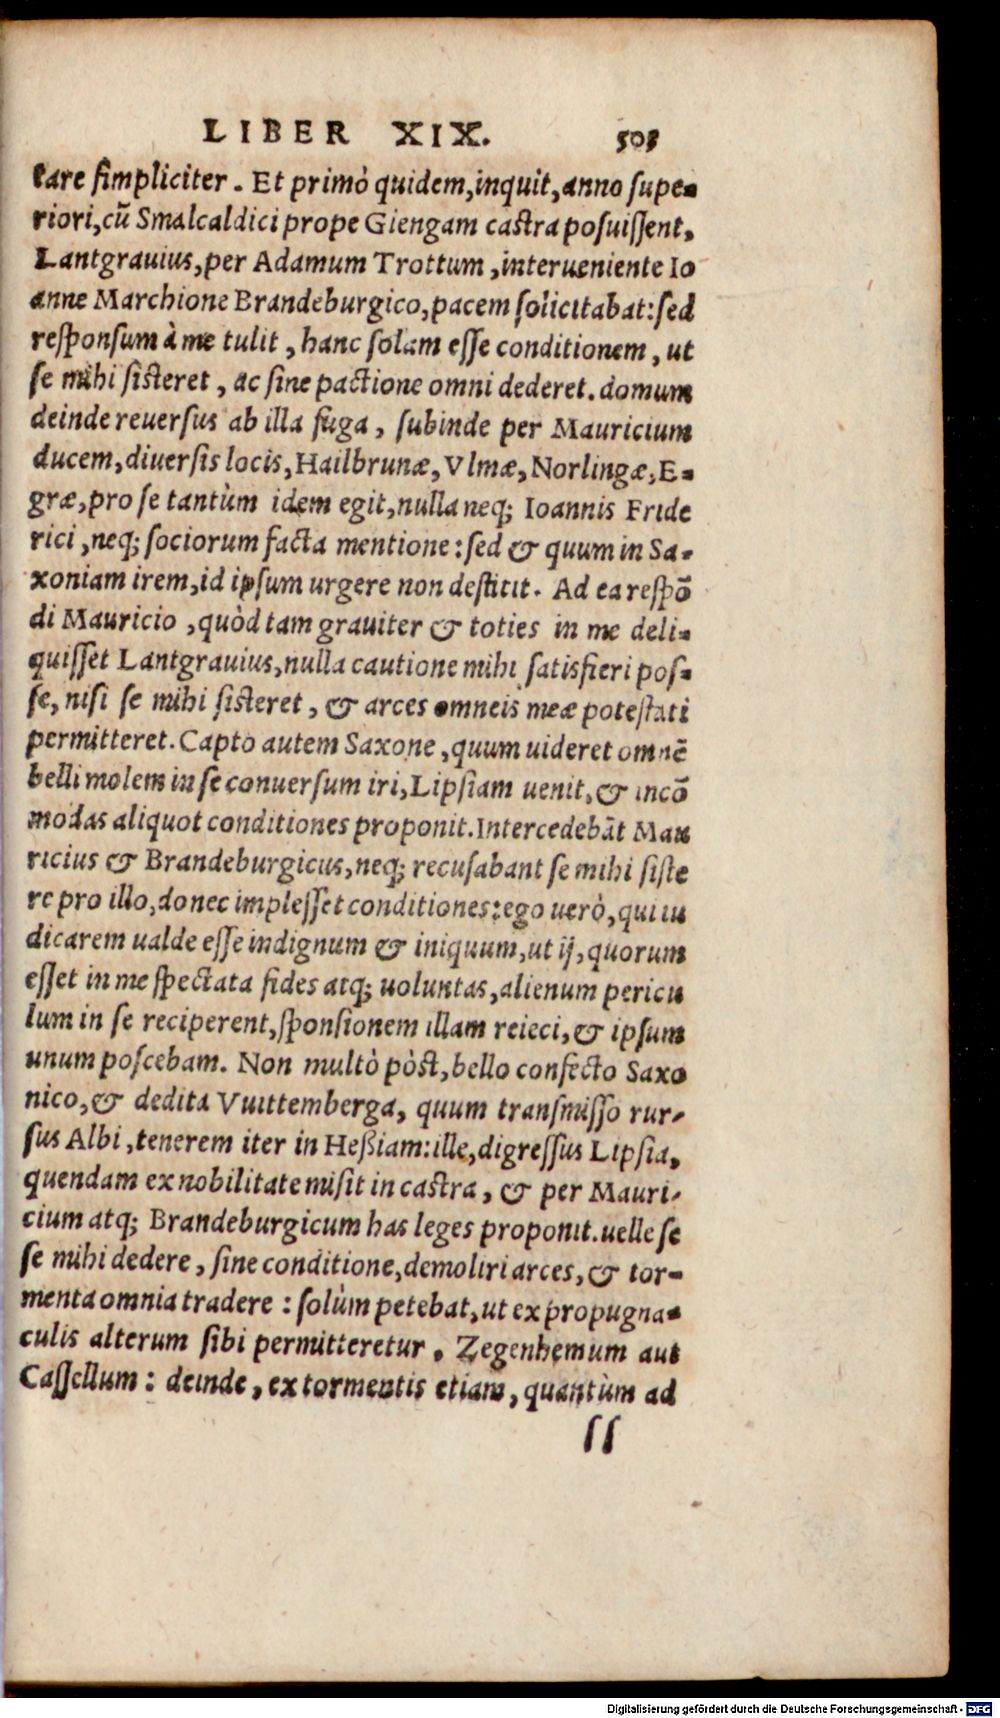 LIBER XIX. 505
tare simpliciter. Et primò quidem, inquit, anno supe-
riori, cũ Smalcaldici prope Giengam castra posuissent,
Lantgrauius, per Adamum Trottum, interueniente Io
anne Marchione Brandeburgico, pacem solicitabat: sed
responsum à me tulit, hanc solam esse conditionem, ut
se mihi sisteret, ac sine pactione omni dederet. domum
deinde reuersus ab illa fuga, subinde per Mauricium
ducem, diuersis locis, Hailbrunæ, Vlmæ, Norlingæ, E-
græ, pro se tantùm idem egit, nulla neq; Ioannis Fride
rici, neq; sociorum facta mentione: sed & quum in Sa-
xoniam irem, id ipsum urgere non destitit. Ad ea respõ
di Mauricio, quòd tam grauiter & toties in me deli-
quisset Lantgrauius, nulla cautione mihi satisfieri pos-
se, nisi se mihi sisteret, & arces omneis meæ potestati
permitteret. Capto autem Saxone, quum uideret omnẽ
belli molem in se conuersum iri, Lipsiam uenit, & incõ
modas aliquot conditiones proponit. Intercedebãt Mau
ricius & Brandeburgicus, neq; recusabant se mihi siste
re pro illo, donec implesset conditiones: ego uerò, qui iu
dicarem ualde esse indignum & iniquum, ut ij, quorum
esset in me spectata fides atq; uoluntas, alienum pericu
lum in se reciperent, sponsionem illam reieci, & ipsum
unum poscebam. Non multò pòst, bello confecto Saxo
nico, & dedita Vuittemberga, quum transmisso rur-
sus Albi, tenerem iter in Heßiam: ille, digressus Lipsia,
quendam ex nobilitate misit in castra, & per Mauri-
cium atq; Brandeburgicum has leges proponit. uelle se
se mihi dedere, sine conditione, demoliri arces, & tor-
menta omnia tradere: solùm petebat, ut ex propugna-
culis alterum sibi permitteretur. Zegenhemum aut
Cassellum: deinde, ex tormentis etiam, quantùm ad
ss
Digitalisierung gefördert durch die Deutsche Forschungsgemeinschaft - DFG